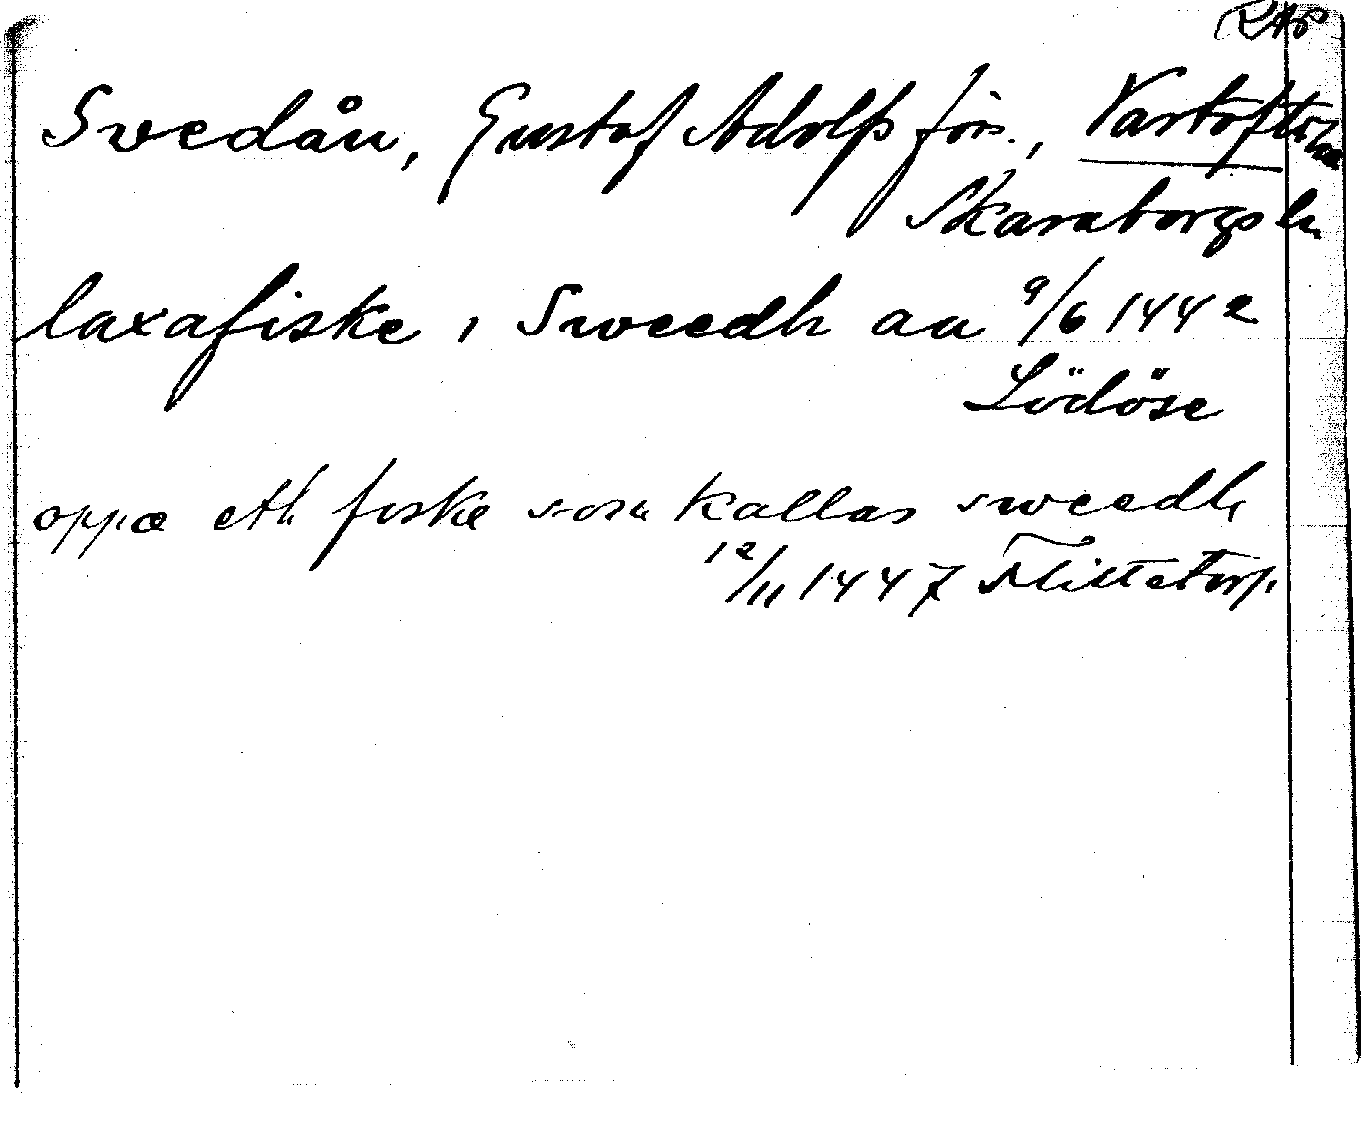 RAP
Svedån, Gustaf Adolfs förs., Vartofta hd
Skaraborgs ln
laxafiske i Sweedh aa 9/6 1442
Lödöse
oppa eth fiske som kallas sweedh
12/11 1447 Slittetorp